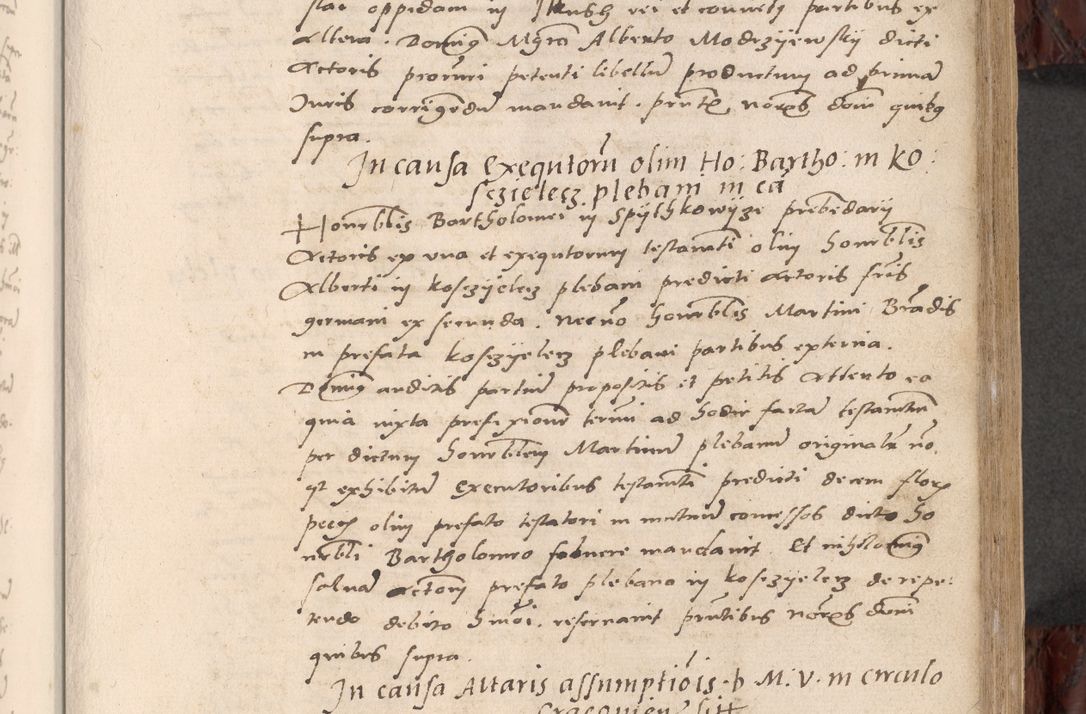 stae oppidam in Ilkush rei et conveti partibus ex
altera. Domiq Mgrm Alberto Modrzyjewsky dicti
Actoris procuri petenti libellum productum ad primam
Juris corrigendum mandavit. pntbs, nores dom quibq
supra.
In causa Exequtoru olim Ho: Bartho: in Ko:
szielecz plebani in ca
Honrblis Bartholomei in Spythkowyze prebendarii
Actoris ex una et exequtorum testamti olim honrblis
Alberti in Koszyelecz plebani predicti Actoris fris
germani ex secunda. necno honrblis Martini Bradis
in prefata Koszyelecz plebani partibus externa.
Domiq auditis partium propositis et petitis Attento eo
quia iuxta prefixione termi ad hodie factam testamtum
per dictum honrblem Martinum plebanum originale no
est exhibitum Executoribus testamti predicti decem flor
pecus olim prefato testatori in mutuum concessos dicto ho
nrbli Bartholomeo solvere mandavit. Et nihilominq
salvam actiom prefato plebano in Koszyelecz de repe:
tendo debito hmoi. reservavit pntibus nores dom
quibus supra.
In causa Altaris assumptiois. b. M. V. in circulo
Cracovien sitt